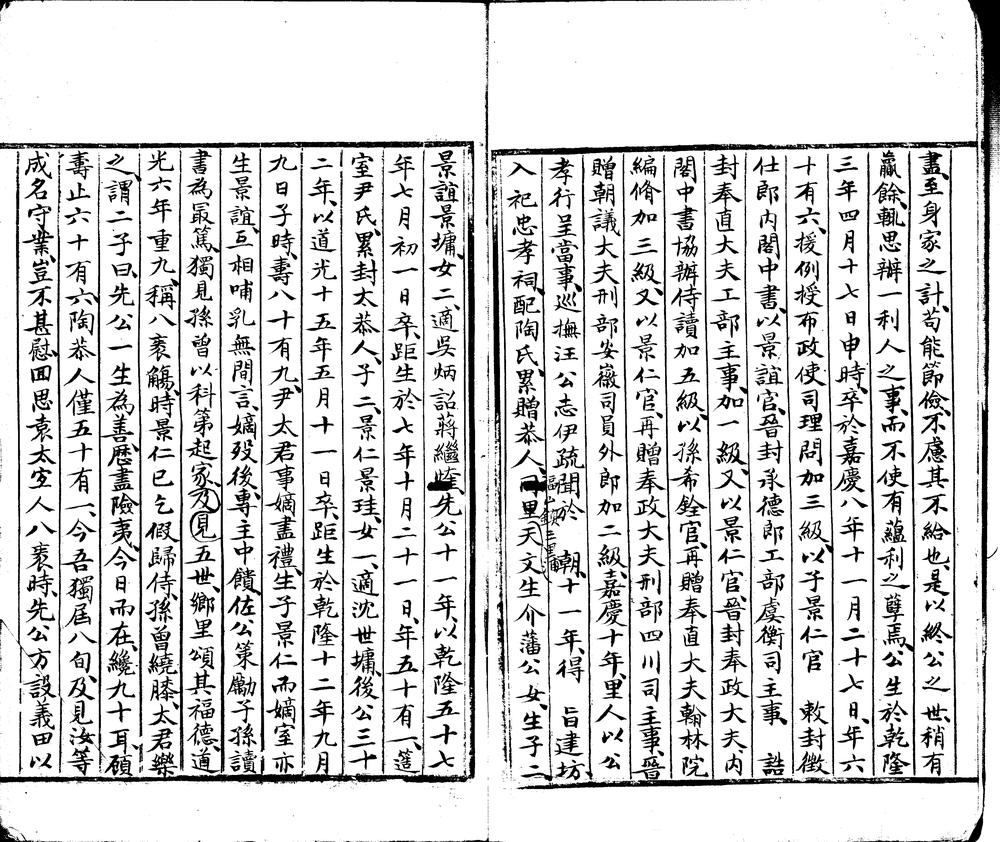 盡至身家之計苟能節儉不慮其不給也是以終公之世稍有
羸餘輒思辦一利人之事而不使有蘊利之孽焉公生於乾隆
三年四月十七日申時卒於嘉慶八年十一月二十七日年六
十有六援例授布政使司理問加三級以子景仁官 敕封徵
仕郎內閣中書以景誼官晉封承德郎工部虞衡司主事 誥
封奉直大夫工部主事加一級又以景仁官晉封奉政大夫內
閣中書協辦侍讀加五級以孫希銓官再贈奉直大夫翰林院
編脩加三級又以景仁官再贈奉政大夫刑部四川司主事晉
贈朝議大夫刑部安徽司員外郎加二級嘉慶十年里人以公
孝行呈當事巡撫汪公志伊疏聞於 朝十一年得 旨建坊
入祀忠孝祠配陶氏累贈恭人里天文生介藩公女生子二
景誼景墉女二適吳炳詔蔣繼先公十一年以乾隆五十七
年七月初一日卒距生於七年十月二十一日年五十有一簉
室尹氏累封太恭人子二景仁景珪女一適沈世墉後公三十
二年以道光十五年五月十一日卒距生於乾隆十二年九月
九日子時壽八十有九尹太君事嫡盡禮生子景仁而嫡室亦
生景誼互相哺乳無間言嫡歿後專主中饋佐公策勵子孫讀
書為最篤獨見孫曾以科第起家及見五世鄉里頌其福德道
光六年重九稱八袠觴時景仁已乞假歸侍孫曾繞膝太君樂
之謂二子曰先公一生為善歷盡險夷今日而在纔九十耳顧
壽止六十有六陶恭人僅五十有一今吾獨屆八旬及見汝等
成名守業豈不甚慰回思袁太安人八袠時先公方設義田以